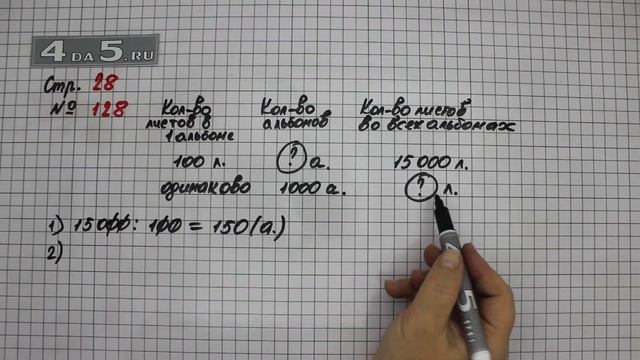 4 DA 5.RU
Стр. 28
№ 128
Кол-во листов в 1 альбоме
Кол-во альбомов
Кол-во листов во всех альбомах
100 л. ? а. 15000 л.
одинаково 1000 а. ? л.
1) 15000 : 100 = 150 (а.)
2)